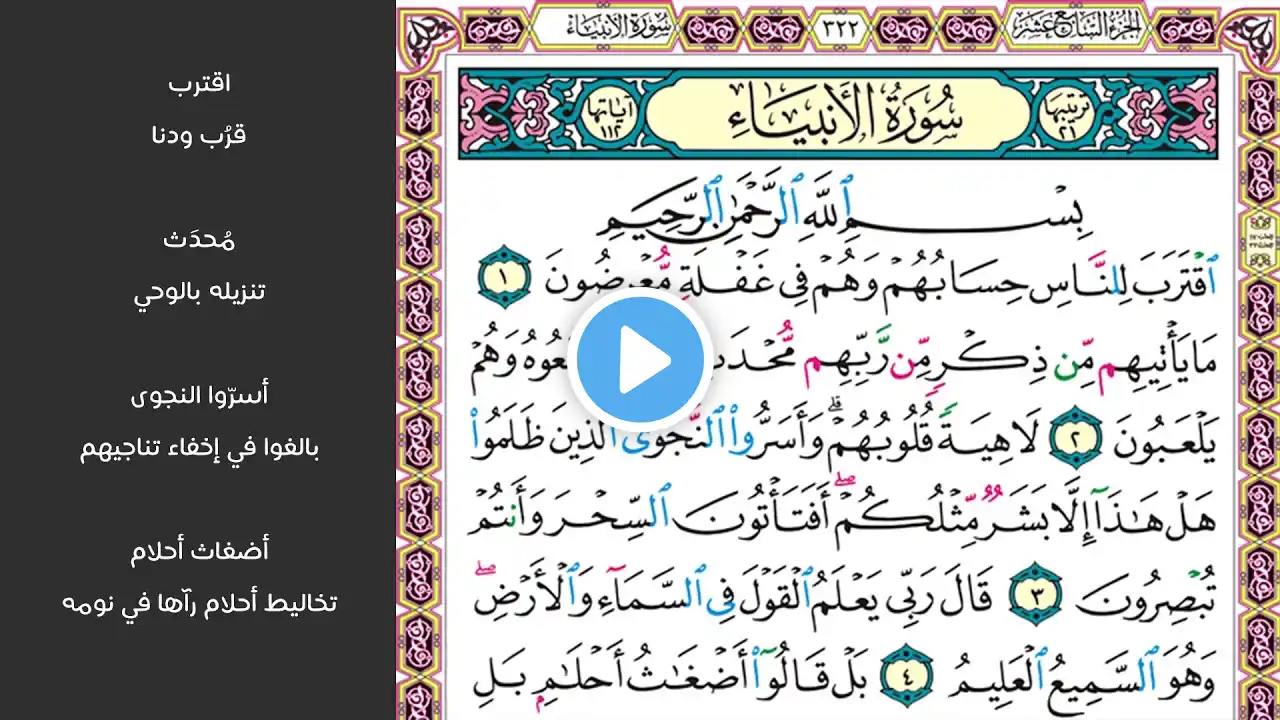 اقترب
قرُب ودنا
مُحدَث
تنزيله بالوحي
أسرّوا النجوى
بالغوا في إخفاء تناجيهم
أضغاث أحلام
تخاليط أحلام رآها في نومه
الجزء السابع عشر ٣٢٢ سورة الأنبياء
ترتيبها ٢١ سُورَةُ الأَنبِيَاءِ آياتها ١١٢
بِسْمِ ٱللَّهِ ٱلرَّحْمَٰنِ ٱلرَّحِيمِ
ٱقْتَرَبَ لِلنَّاسِ حِسَابُهُمْ وَهُمْ فِى غَفْلَةٍ مُّعْرِضُونَ ١
مَا يَأْتِيهِم مِّن ذِكْرٍ مِّن رَّبِّهِم مُّحْدَثٍ وَهُمْ
يَلْعَبُونَ ٢ لَاهِيَةً قُلُوبُهُمْ ۗ وَأَسَرُّوا۟ ٱلنَّجْوَى ٱلَّذِينَ ظَلَمُوا۟
هَلْ هَٰذَآ إِلَّا بَشَرٌ مِّثْلُكُمْ ۖ أَفَتَأْتُونَ ٱلسِّحْرَ وَأَنتُمْ
تُبْصِرُونَ ٣ قَالَ رَبِّى يَعْلَمُ ٱلْقَوْلَ فِى ٱلسَّمَآءِ وَٱلْأَرْضِ ۖ
وَهُوَ ٱلسَّمِيعُ ٱلْعَلِيمُ ٤ بَلْ قَالُوٓا۟ أَضْغَٰثُ أَحْلَٰمٍ بَلِ